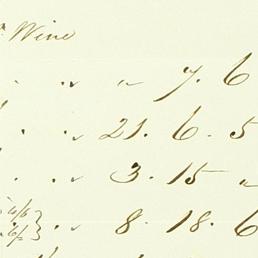 Wine
" 7. 6
21. 6. 5
3. 15 "
6/6 } 8. 18. 6